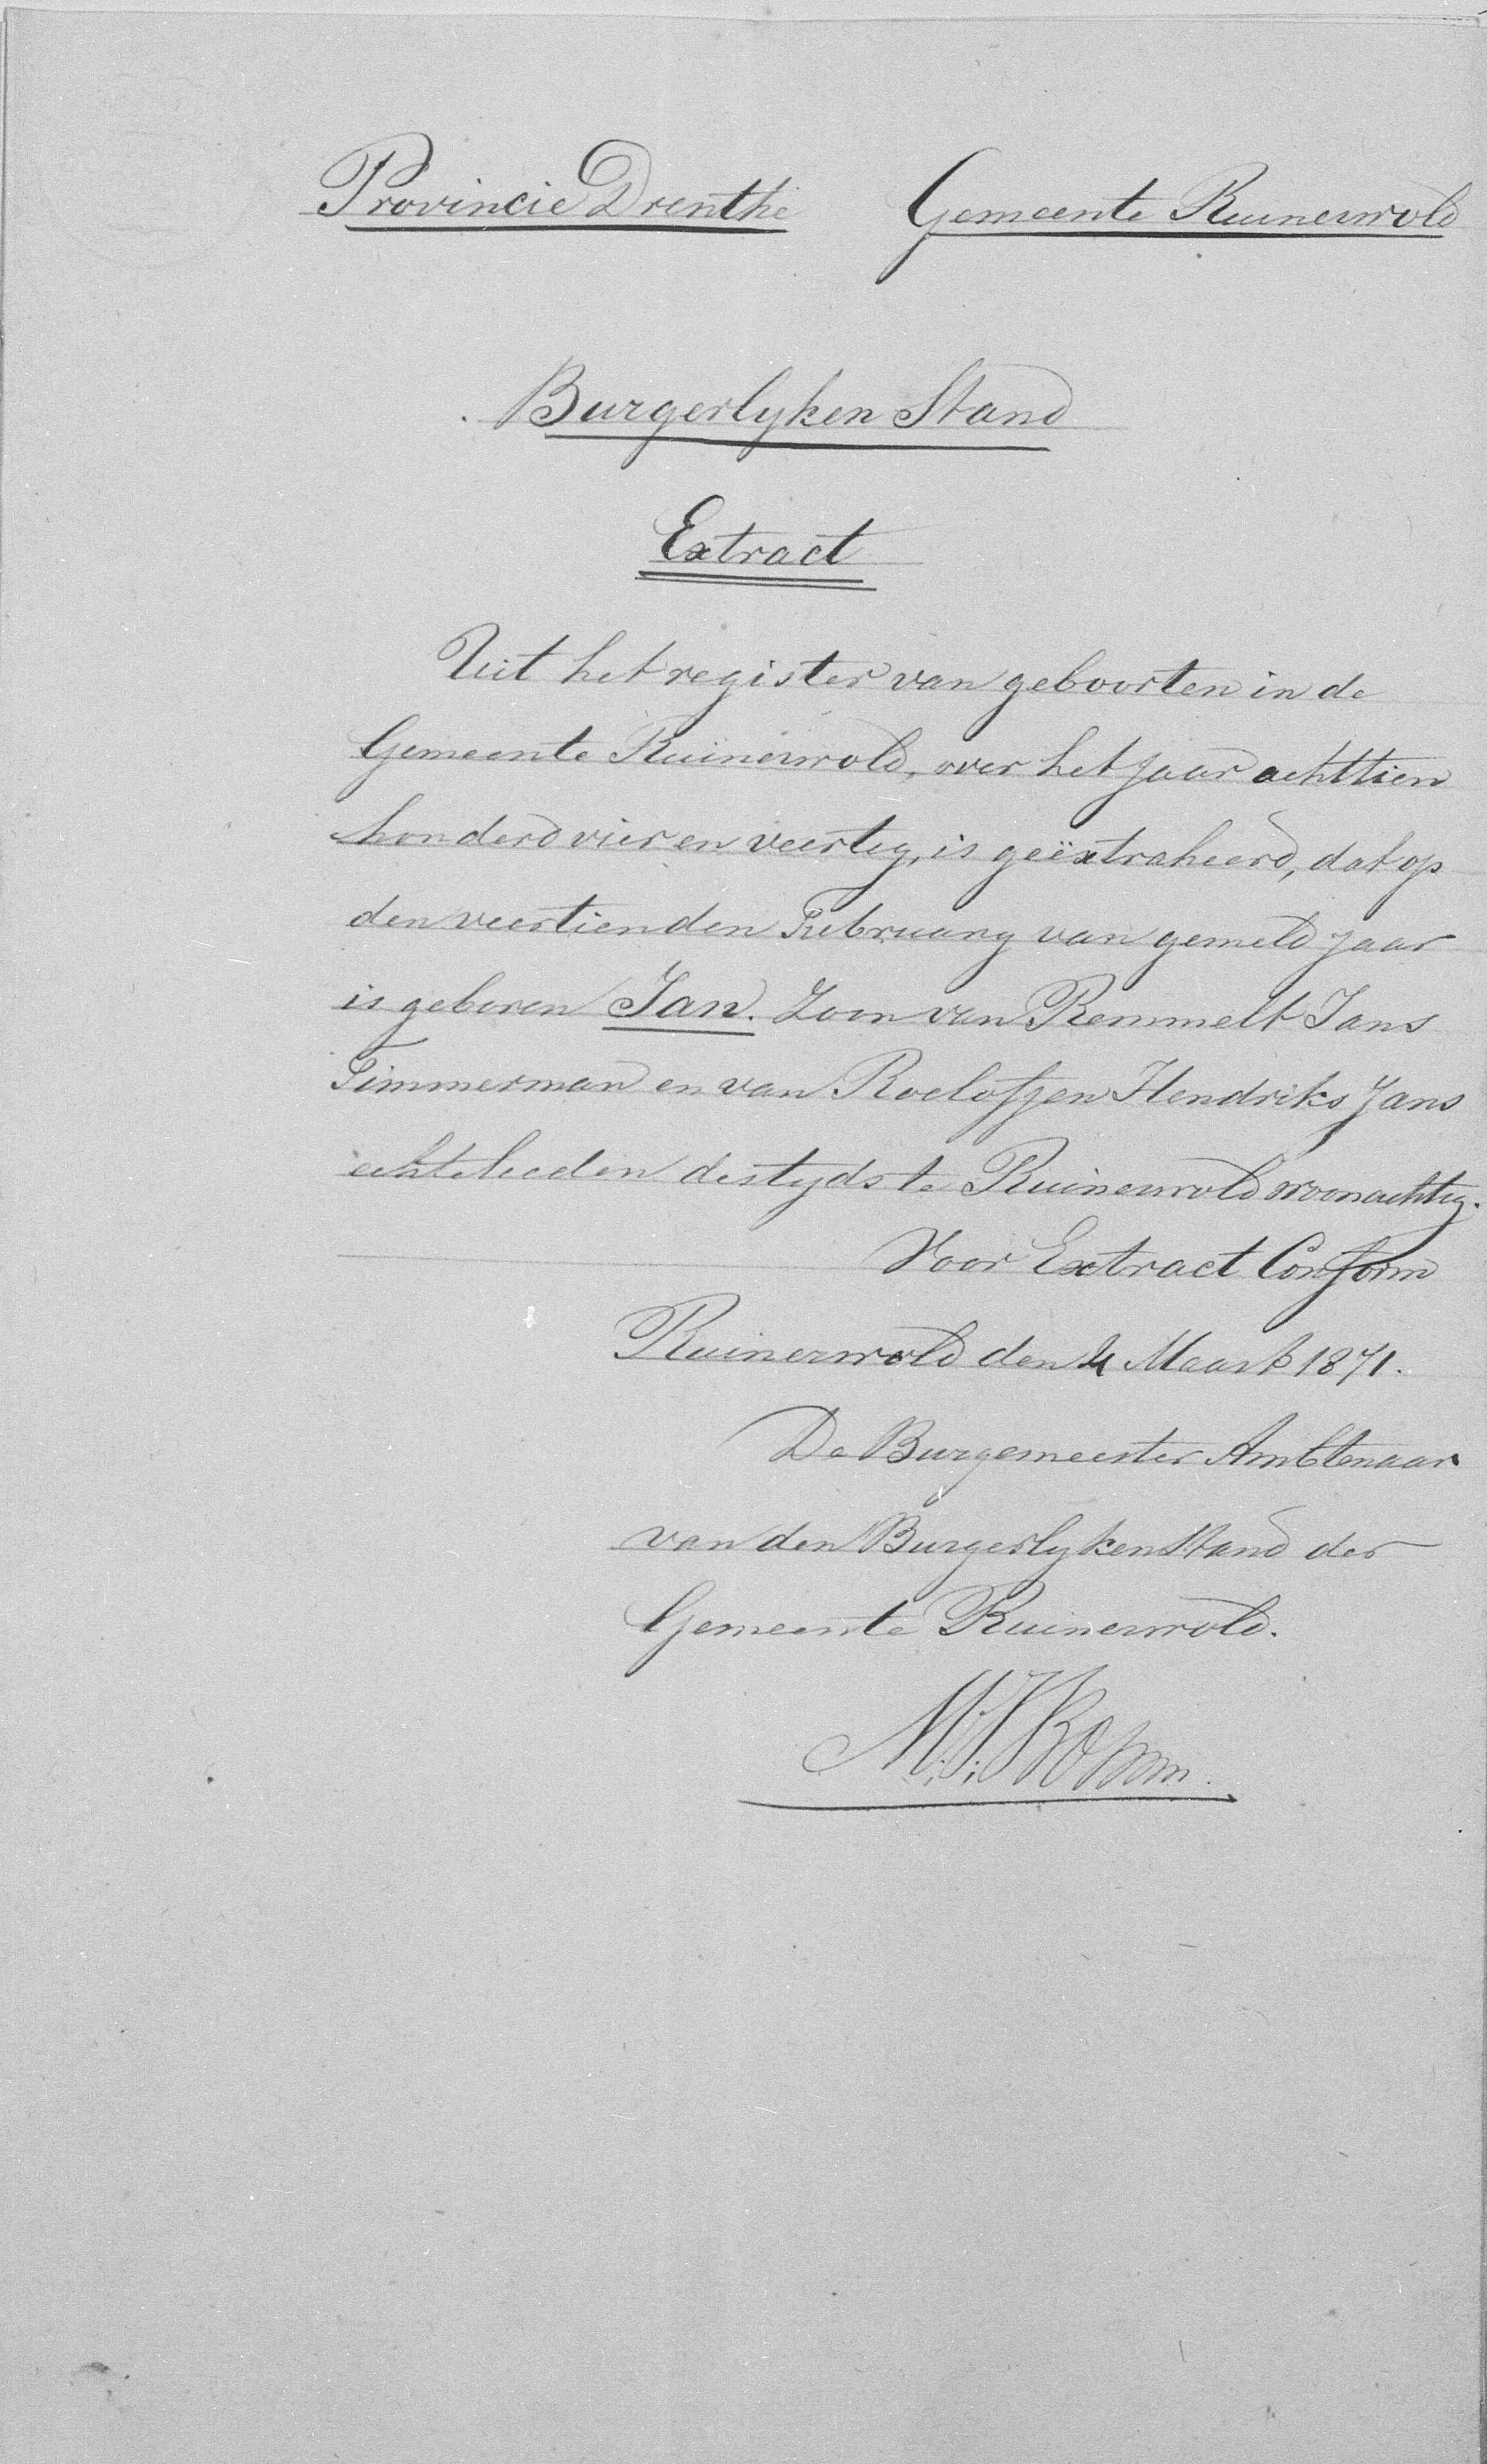 Provincie Drenthe Gemeente Ruinerwold
Burgerlyken Stand
Extract
Uit het register van geboorten in de
Gemeente Ruinerwold, over het jaar achttien
honderd vier en veertig, is geëxtraheerd, dat op
den veertienden February van gemeld jaar
is geboren Jan. Zoon van Remmelt Jans
Timmerman en van Roelofjen Hendriks Jans
echtelieden destyds te Ruinerwold woonachtig.
Voor Extract Conform
Ruinerwold den 4 Maart 1871.
De Burgemeester Ambtenaar
van den Burgerlyken Stand der
Gemeente Ruinerwold.